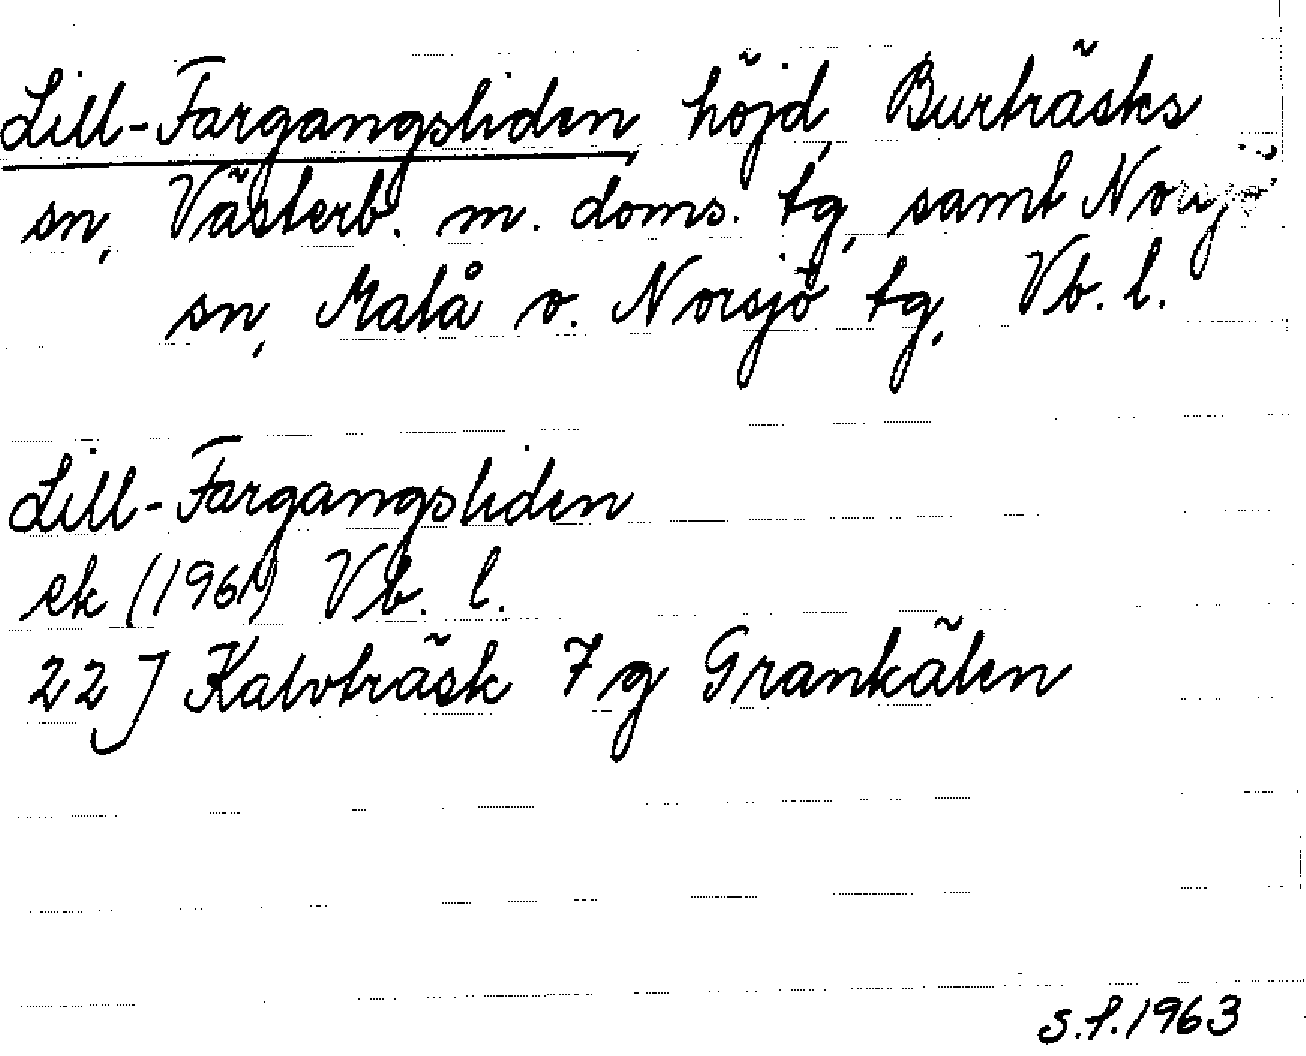 Lill-Fargangsliden, höjd, Burträsks
sn, Västerb. m. doms. tg, samt Norsjö
sn, Malå o. Norsjö tg, Vb. l.
Lill-Fargangsliden
ek (1961) Vb. l.
22 J Kalvträsk 7 g Grankälen
s.f. 1963